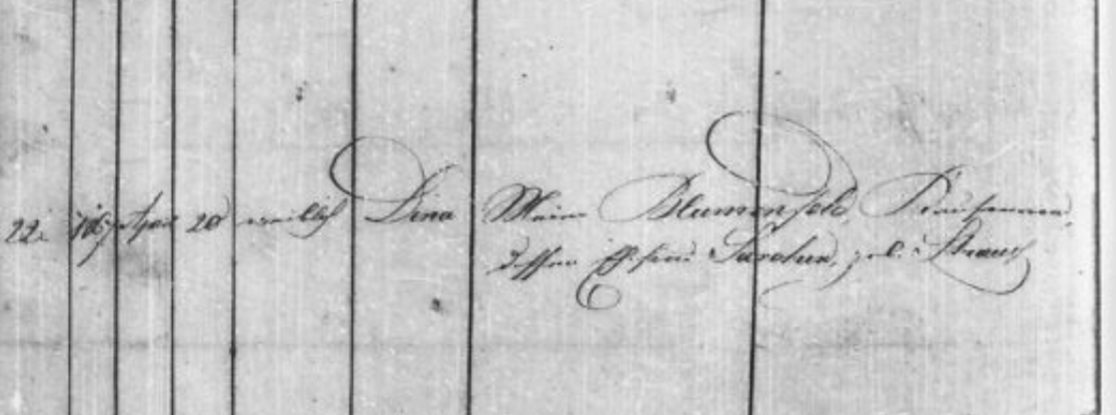 22. 20 weiblich Dina Maier Blumenfeld, Kaufmann,
dessen Ehefrau Karolina, geb. Strauß